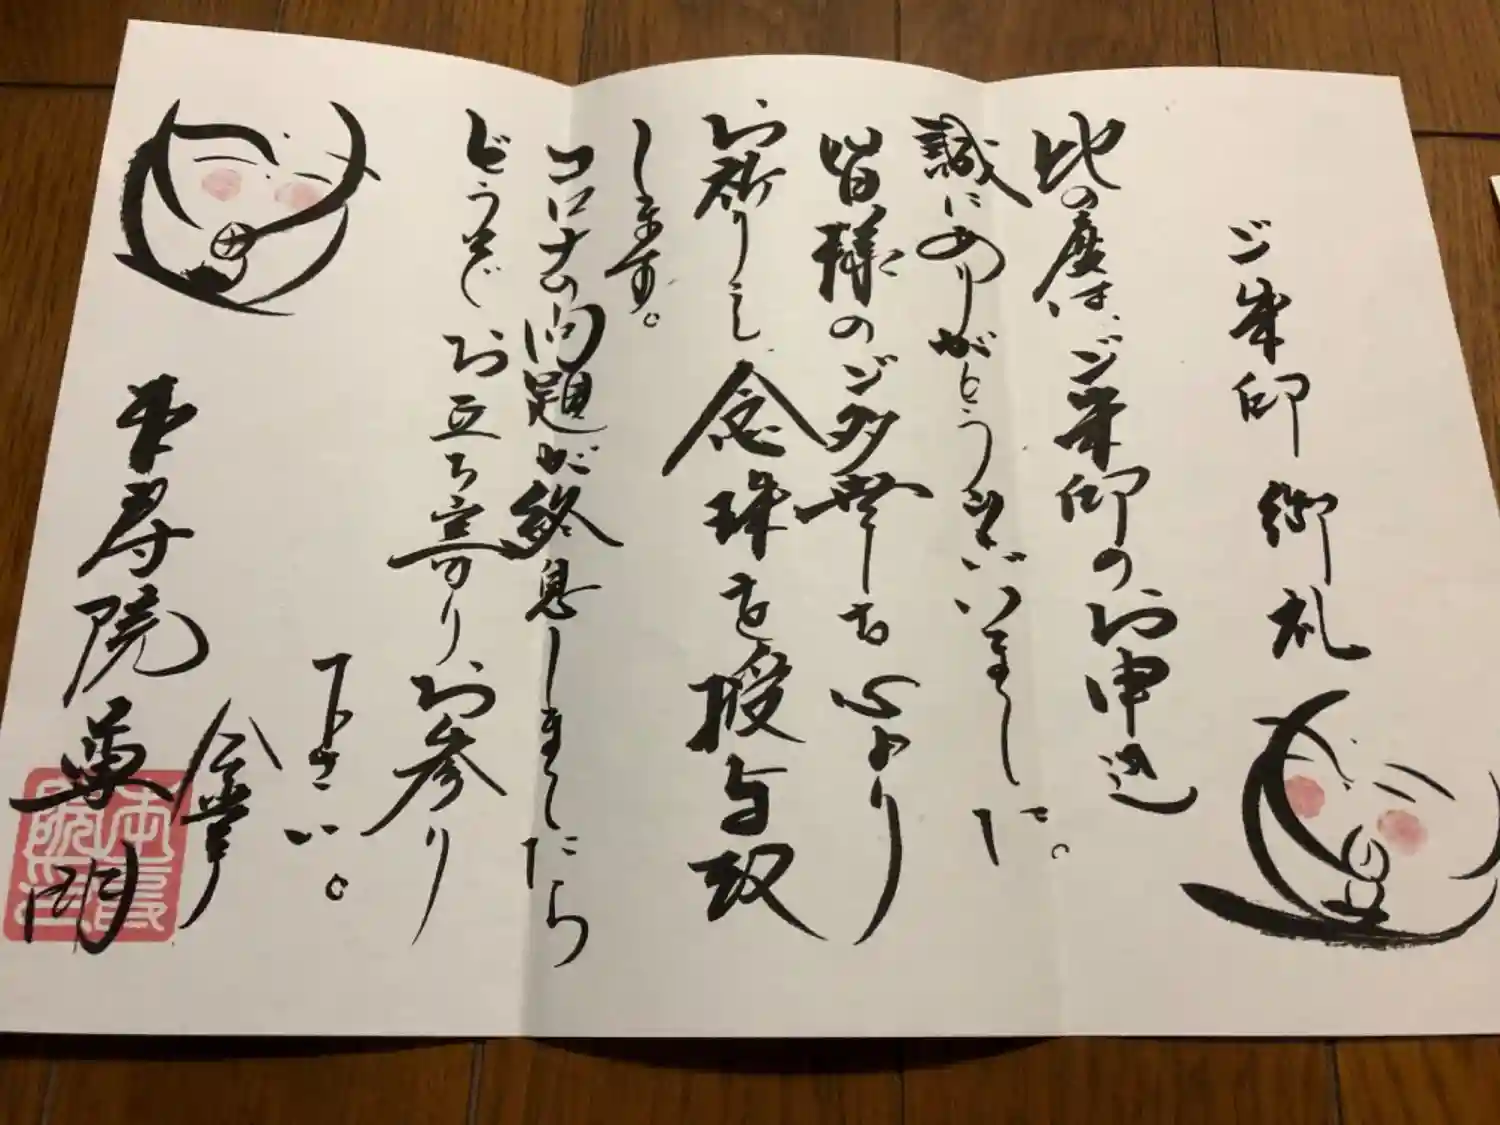 ご朱印御礼
此の度は、ご朱印のお申込
誠にありがとうございました。
皆様のご多幸を心より
お祈りし念珠を授与致
します。
コロナの問題が終息しましたら
どうぞお立ち寄りお参り
下さい。
合掌
本寿院尊明